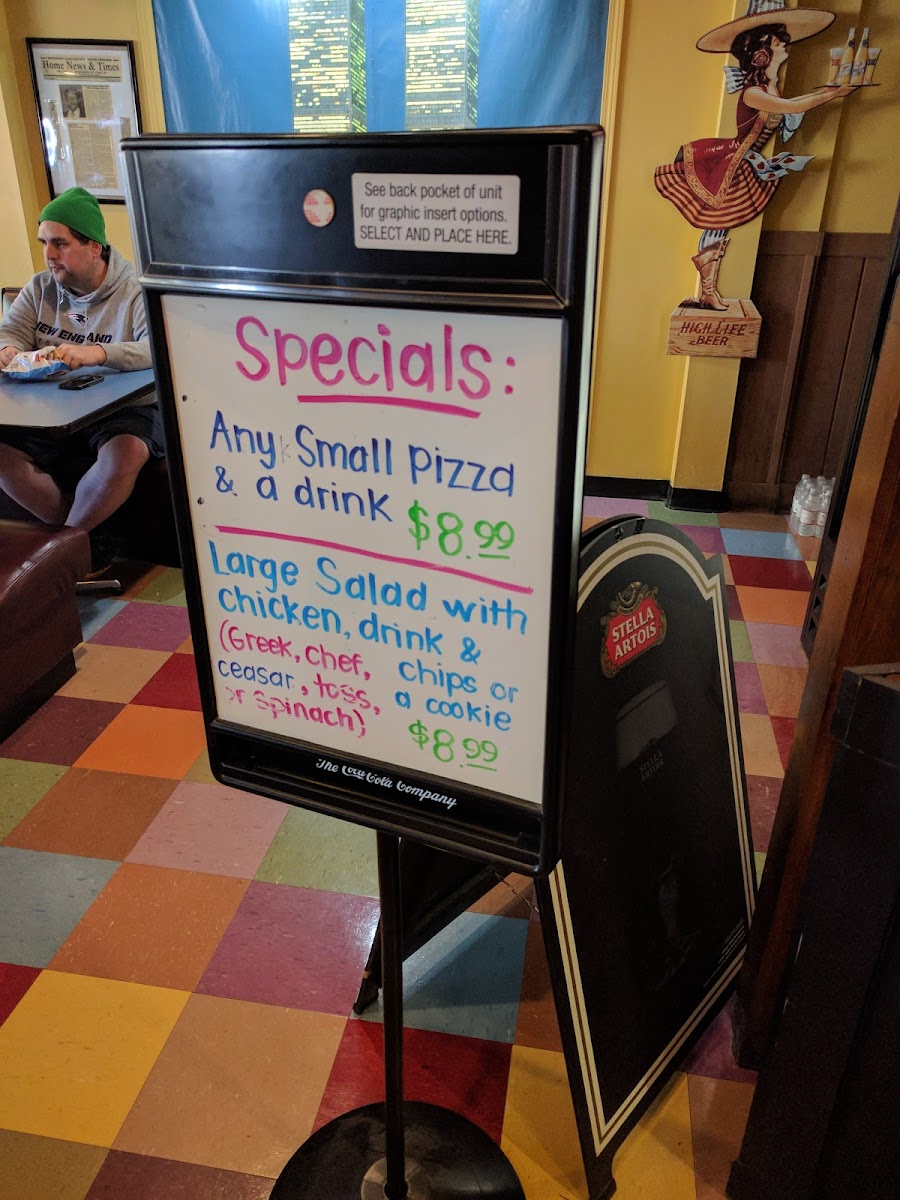 Home News & Times
See back pocket of unit
for graphic insert options.
SELECT AND PLACE HERE.
Specials:
Any Small Pizza
& a drink $8.99
Large Salad with
chicken, drink &
chips or
a cookie
(Greek, chef,
ceasar, toss,
or Spinach)
$8.99
The Coca-Cola Company
NEW ENGLAND
HIGH LIFE
BEER
STELLA
ARTOIS